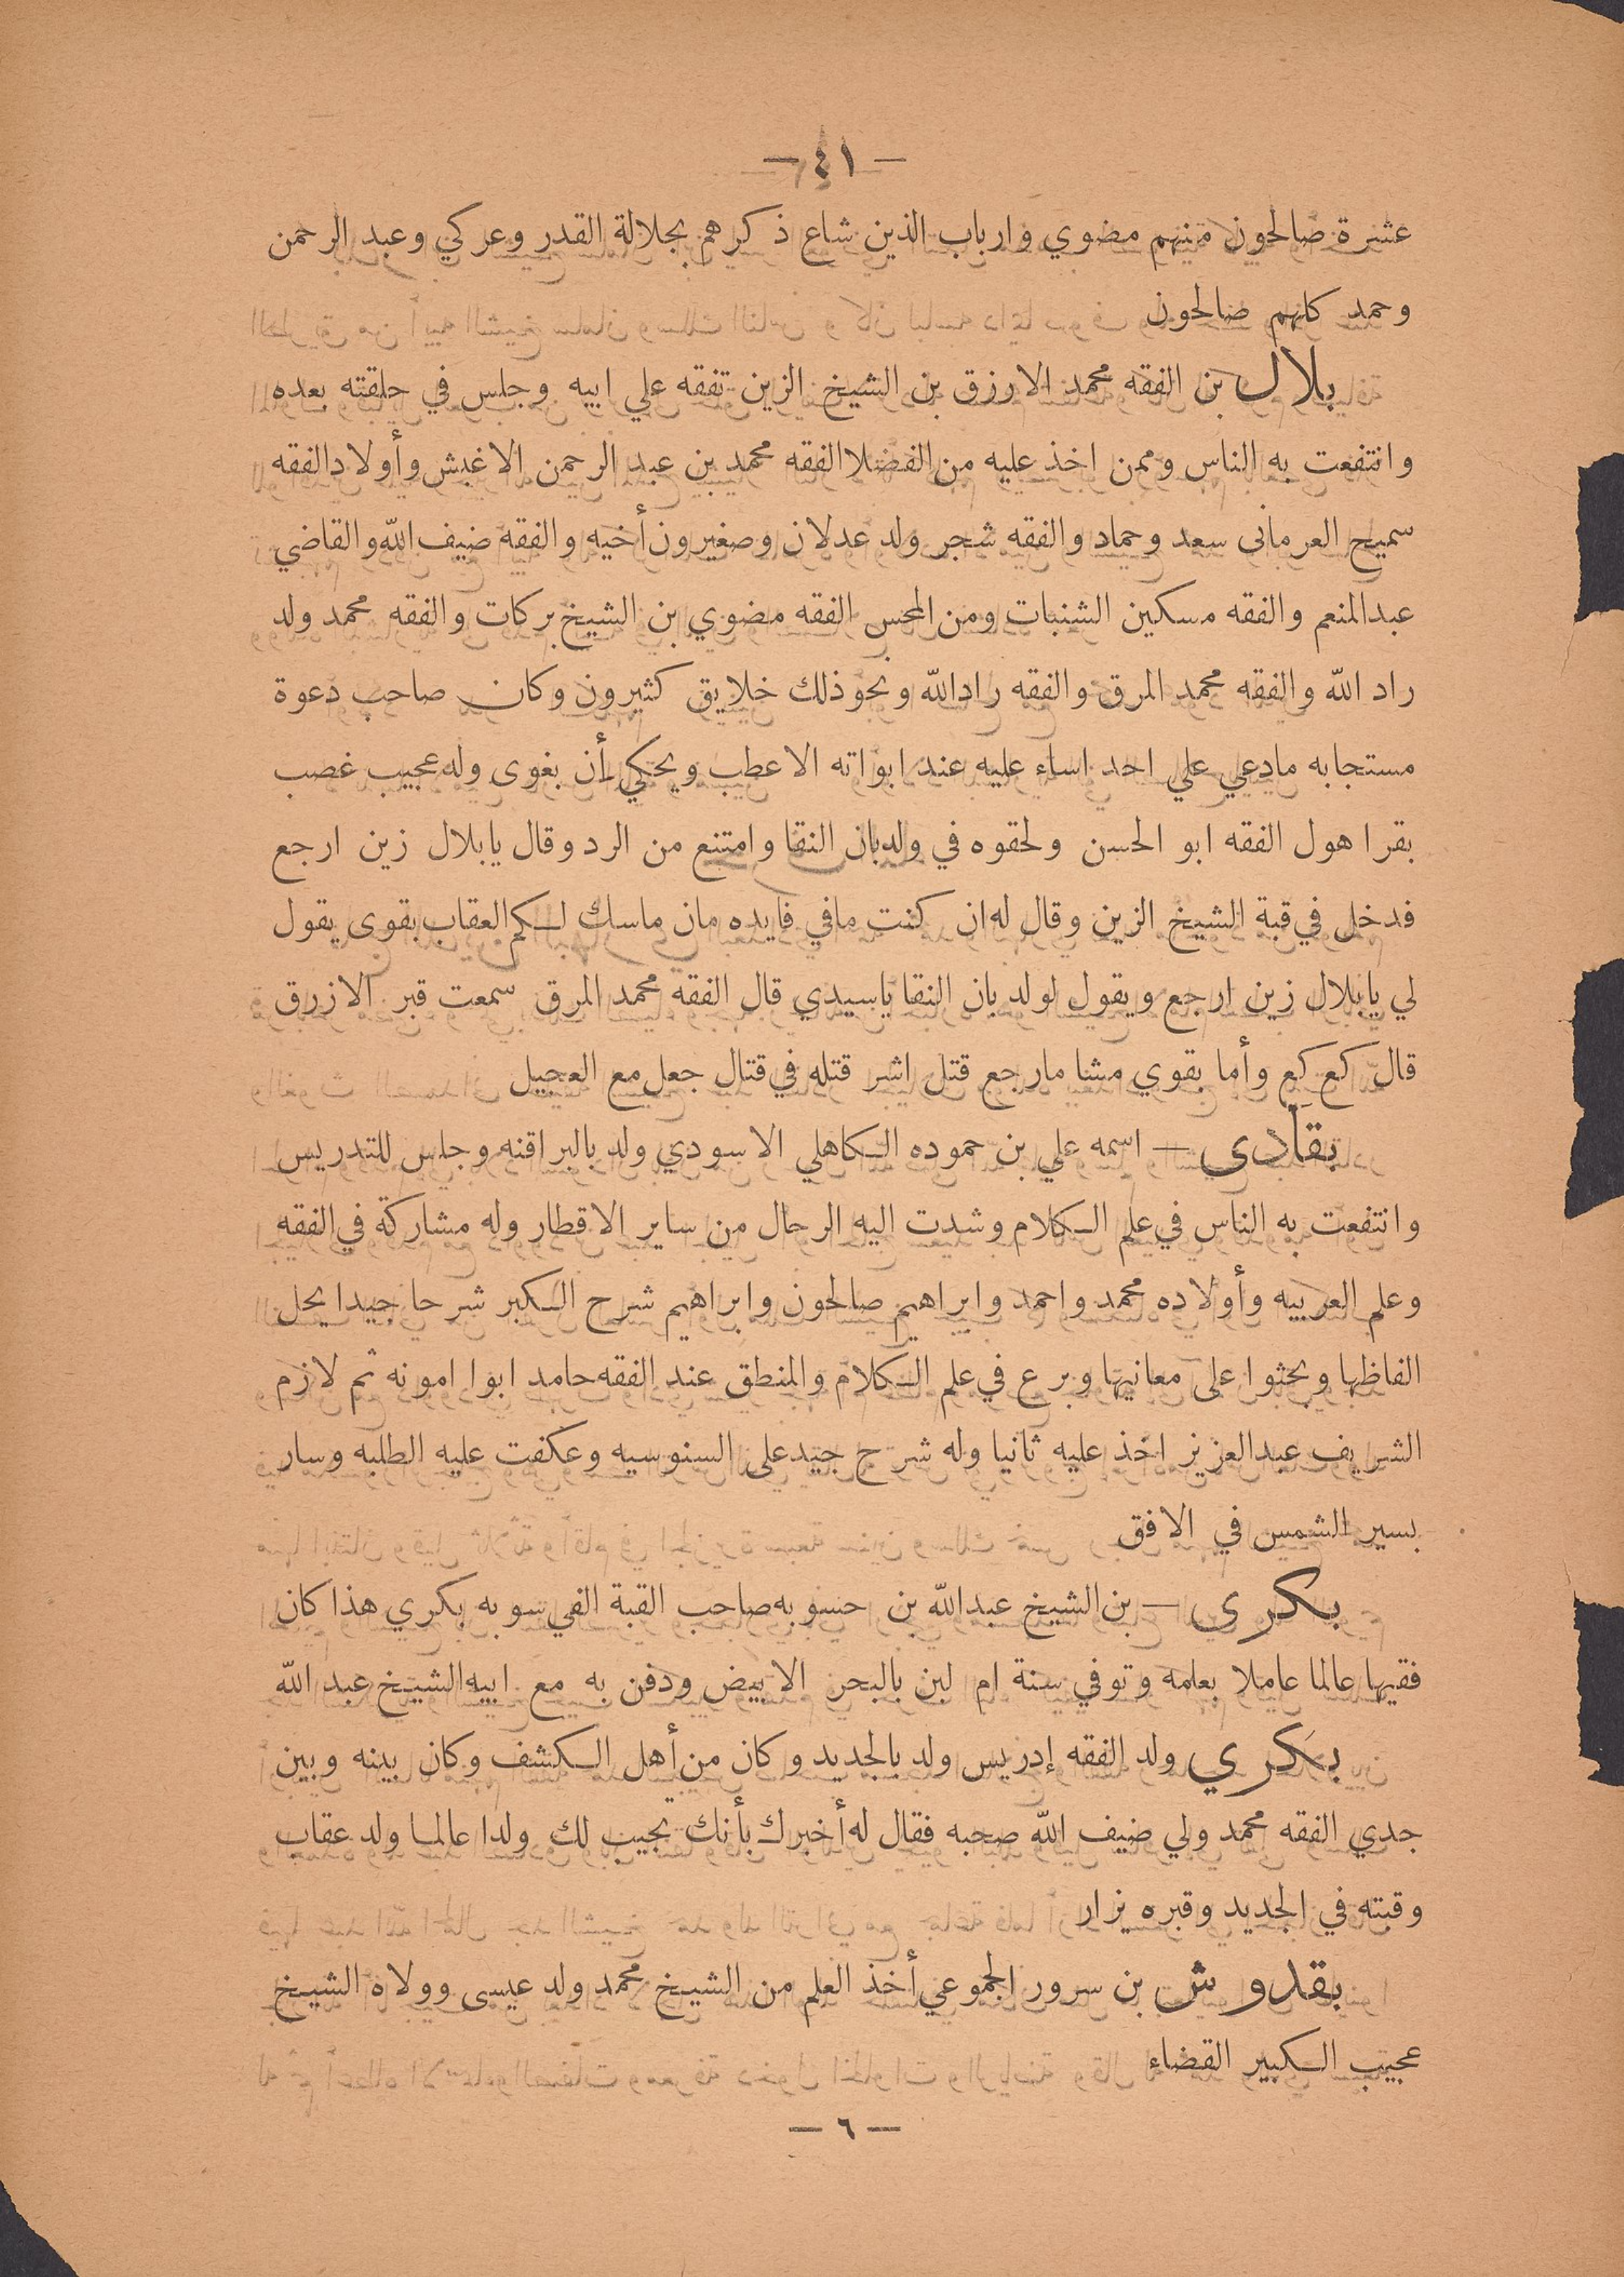 — ٤١ —
عشرة صالحون منهم مضوي وارباب الذين شاع ذكرهم بجلالة القدر وعركي وعبد الرحمن
وحمد كلهم صالحون
بلال بن الفقه محمد الارزق بن الشيخ الزين تفقه علي ابيه وجلس في حلقته بعده
وانتفعت به الناس وممن اخذ عليه من الفضلا الفقه محمد بن عبد الرحمن الاغبش وأولاد الفقه
سميح العرمانى سعد وحماد والفقه شجر ولد عدلان وصغيرون أخيه والفقه ضيف الله والقاضي
عبدالمنعم والفقه مسكين الشنبات ومن المحس الفقه مضوي بن الشيخ بركات والفقه محمد ولد
راد الله والفقه محمد المرق والفقه رادالله ونحو ذلك خلايق كثيرون وكان صاحب دعوة
مستجابه مادعي علي احد اساء عليه عند ابواته الا عطب ويحكي أن بغوى وله عجيب غصب
بقرا هول الفقه ابو الحسن ولحقوه في ولدبان النقا وامتنع من الرد وقال يابلال زين ارجع
فدخل في قبة الشيخ الزين وقال له ان كنت مافي فايده مان ماسك لكم العقاب بقوى يقول
لي يابلال زين ارجع ويقول لولد بان النقا ياسيدي قال الفقه محمد المرق سمعت قبر الازرق
قال كع كع وأما بقوي مشا مارجع قتل اشر قتله في قتال جعل مع العجيل
بقادى — اسمه علي بن حموده الكاهلي الاسودي ولد بالبراقنه وجلس للتدريس
وانتفعت به الناس في علم الكلام وشدت اليه الرحال من ساير الاقطار وله مشاركة في الفقه
وعلم العربيه وأولاده محمد واحمد وابراهيم صالحون وابراهيم شرح الكبر شرحا جيدا يحل
الفاظها وبحثوا على معانيها وبرع في علم الكلام والمنطق عند الفقه حامد ابوا امونه ثم لازم
الشريف عبدالعزيز اخذ عليه ثانيا وله شرح جيد على السنوسيه وعكفت عليه الطلبه وسار
بسير الشمس في الافق
بكرى — بن الشيخ عبدالله بن حسوبه صاحب القبة الفي سوبه بكري هذا كان
فقيها عالما عاملا بعلمه وتوفي سنة ام لبن بالبحر الابيض ودفن به مع ابيه الشيخ عبد الله
بكري ولد الفقه إدريس ولد بالجديد وكان من أهل الكشف وكان بينه وبين
جدي الفقه محمد ولي ضيف الله صحبه فقال له أخبرك بأنك تجيب لك ولدا عالما ولد عقاب
وقبته في الجديد وقبره يزار
بقدوش بن سرور الجموعي أخذ العلم من الشيخ محمد ولد عيسى وولاه الشيخ
عجيب الكبير القضاء
— ٦ —